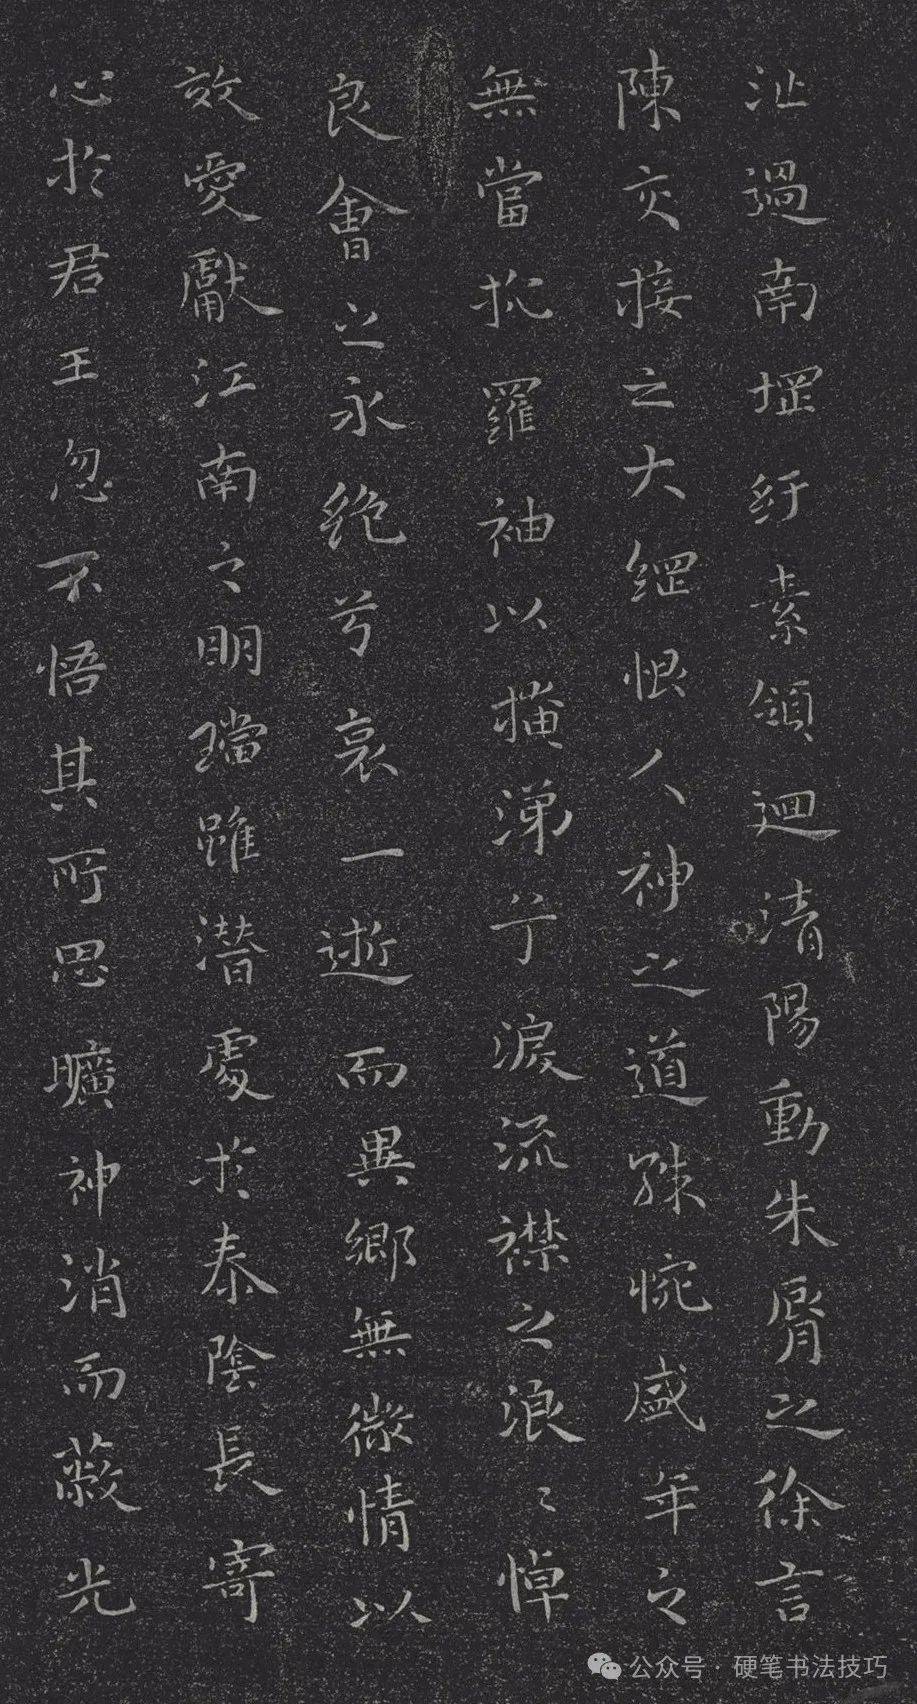 沚過南堽紆素領迴清陽動朱脣之徐言
陳交接之大綱恨人神之道殊惋盛年之
無當抗羅袖以掩涕兮淚流襟之浪〻悼
良會之永絕兮哀一逝而異鄉無微情以
效愛獻江南之明璫雖潛處於泰陰長寄
心於君王忽不悟其所思曠神消而蔽光
公众号·硬笔书法技巧